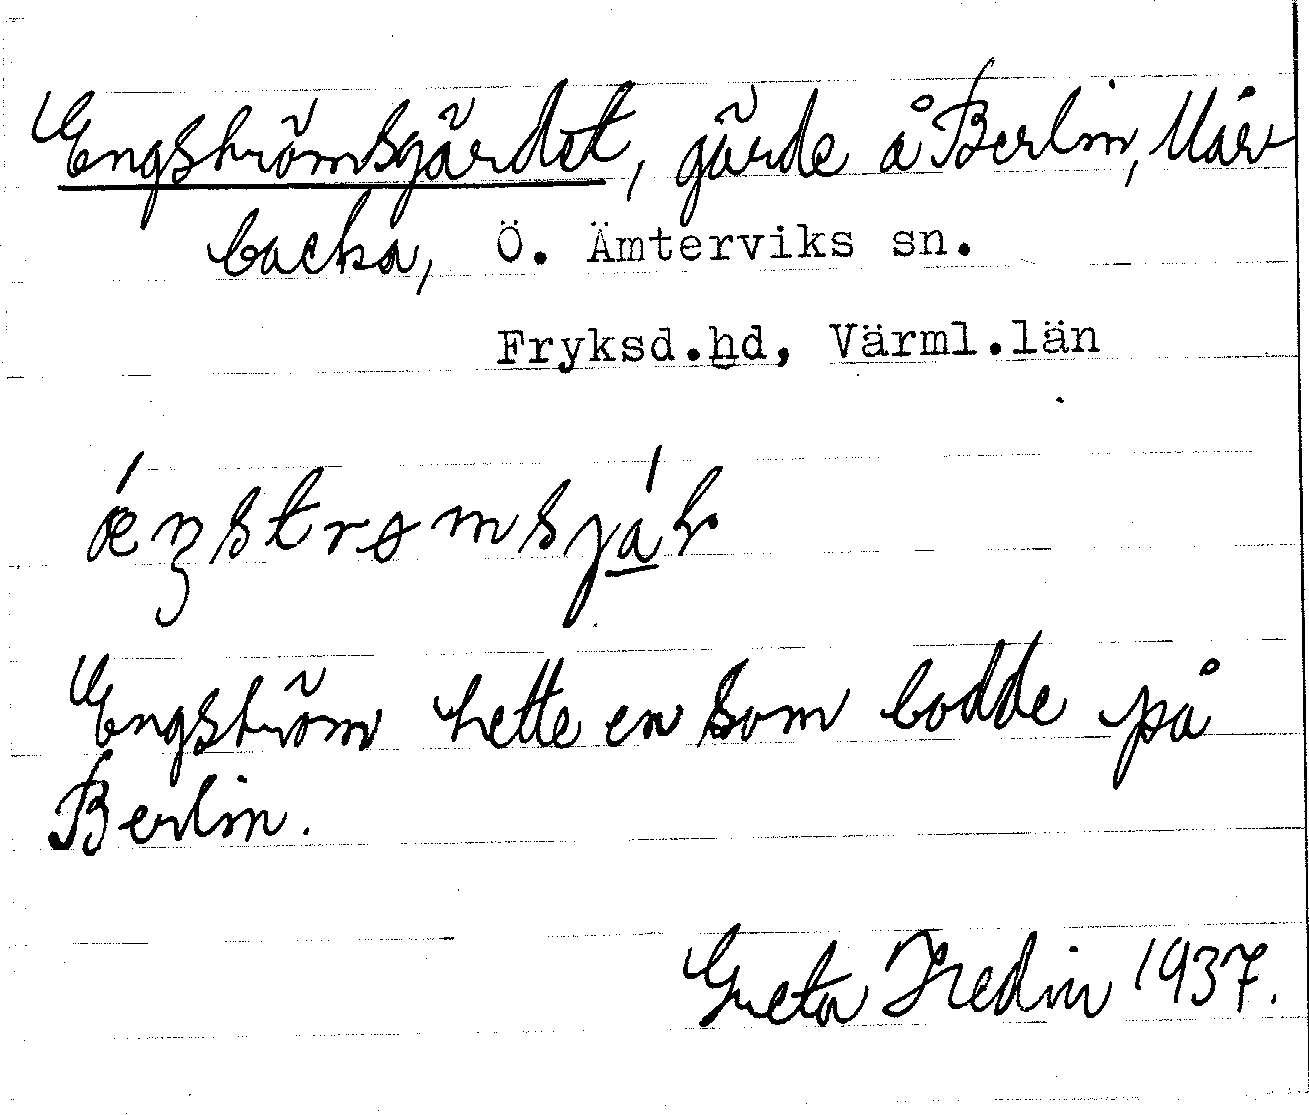 Engströmsgärdet, gärde å Berlin, Mår
backa, Ö. Ämterviks sn.
Fryksd.hd, Värml.län
Engström hette en som bodde på
Berlin.
Greta Hedin 1937.